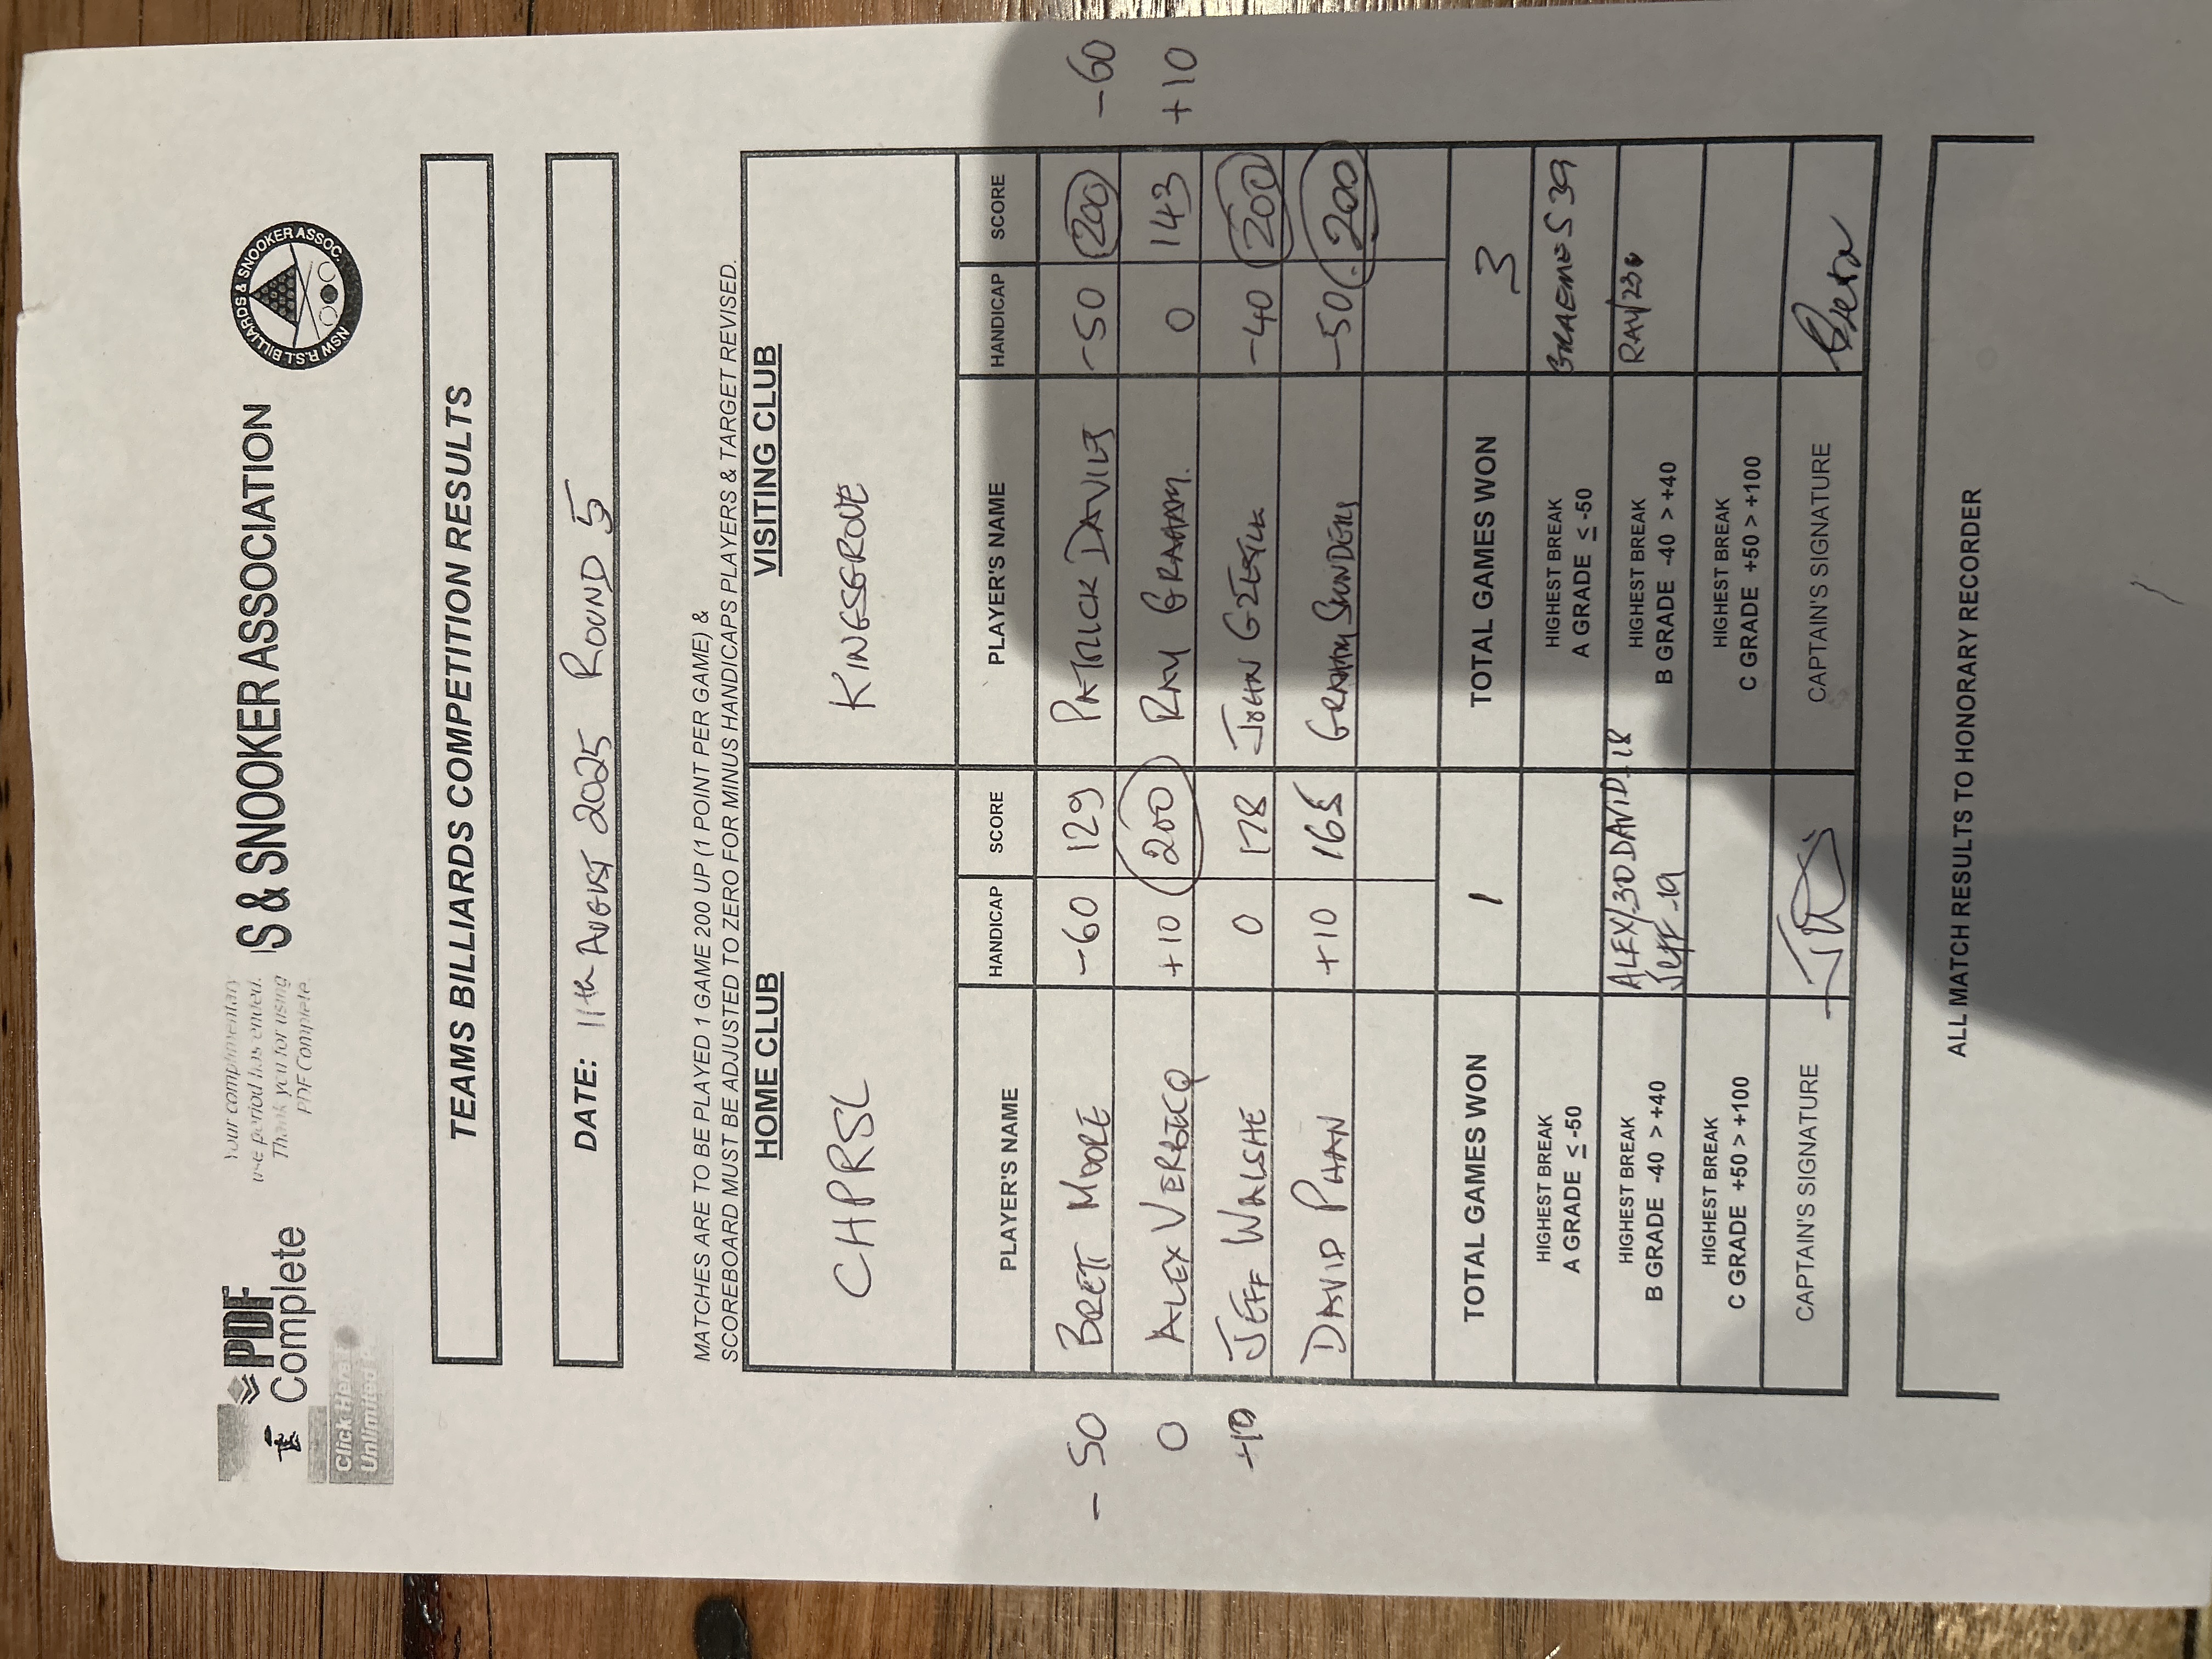 Your complimentary
use period has ended.
Thank you for using
PDF Complete.
PDF
Complete
Click Here
Unlimited
S & SNOOKER ASSOCIATION
NSW R.S.L BILLIARDS & SNOOKER ASSOC.
TEAMS BILLIARDS COMPETITION RESULTS
DATE: 11th AUGUST 2025 ROUND 5
MATCHES ARE TO BE PLAYED 1 GAME 200 UP (1 POINT PER GAME) &
SCOREBOARD MUST BE ADJUSTED TO ZERO FOR MINUS HANDICAPS PLAYERS & TARGET REVISED.
HOME CLUB VISITING CLUB
CHPRSL KINGSGROVE
PLAYER'S NAME HANDICAP SCORE PLAYER'S NAME HANDICAP SCORE
-50 BRETT MOORE -60 129 PATRICK DAVIES -50 200 -60
0 ALEX VERBECQ +10 200 RAY GRAHAM. 0 143 +10
+10 JEFF WALSHE 0 178 JOHN -40 200
DAVID PHAN +10 165 GRAHAM SAUNDERS -50 200
TOTAL GAMES WON 1 TOTAL GAMES WON 3
HIGHEST BREAK
A GRADE ≤ -50
HIGHEST BREAK
A GRADE ≤ -50
GRAEME S 39
HIGHEST BREAK
B GRADE -40 > +40
ALEX/-30 DAVID-18
Jeff -19
HIGHEST BREAK
B GRADE -40 > +40
RAY/
HIGHEST BREAK
C GRADE +50 > +100
HIGHEST BREAK
C GRADE +50 > +100
CAPTAIN'S SIGNATURE CAPTAIN'S SIGNATURE
ALL MATCH RESULTS TO HONORARY RECORDER